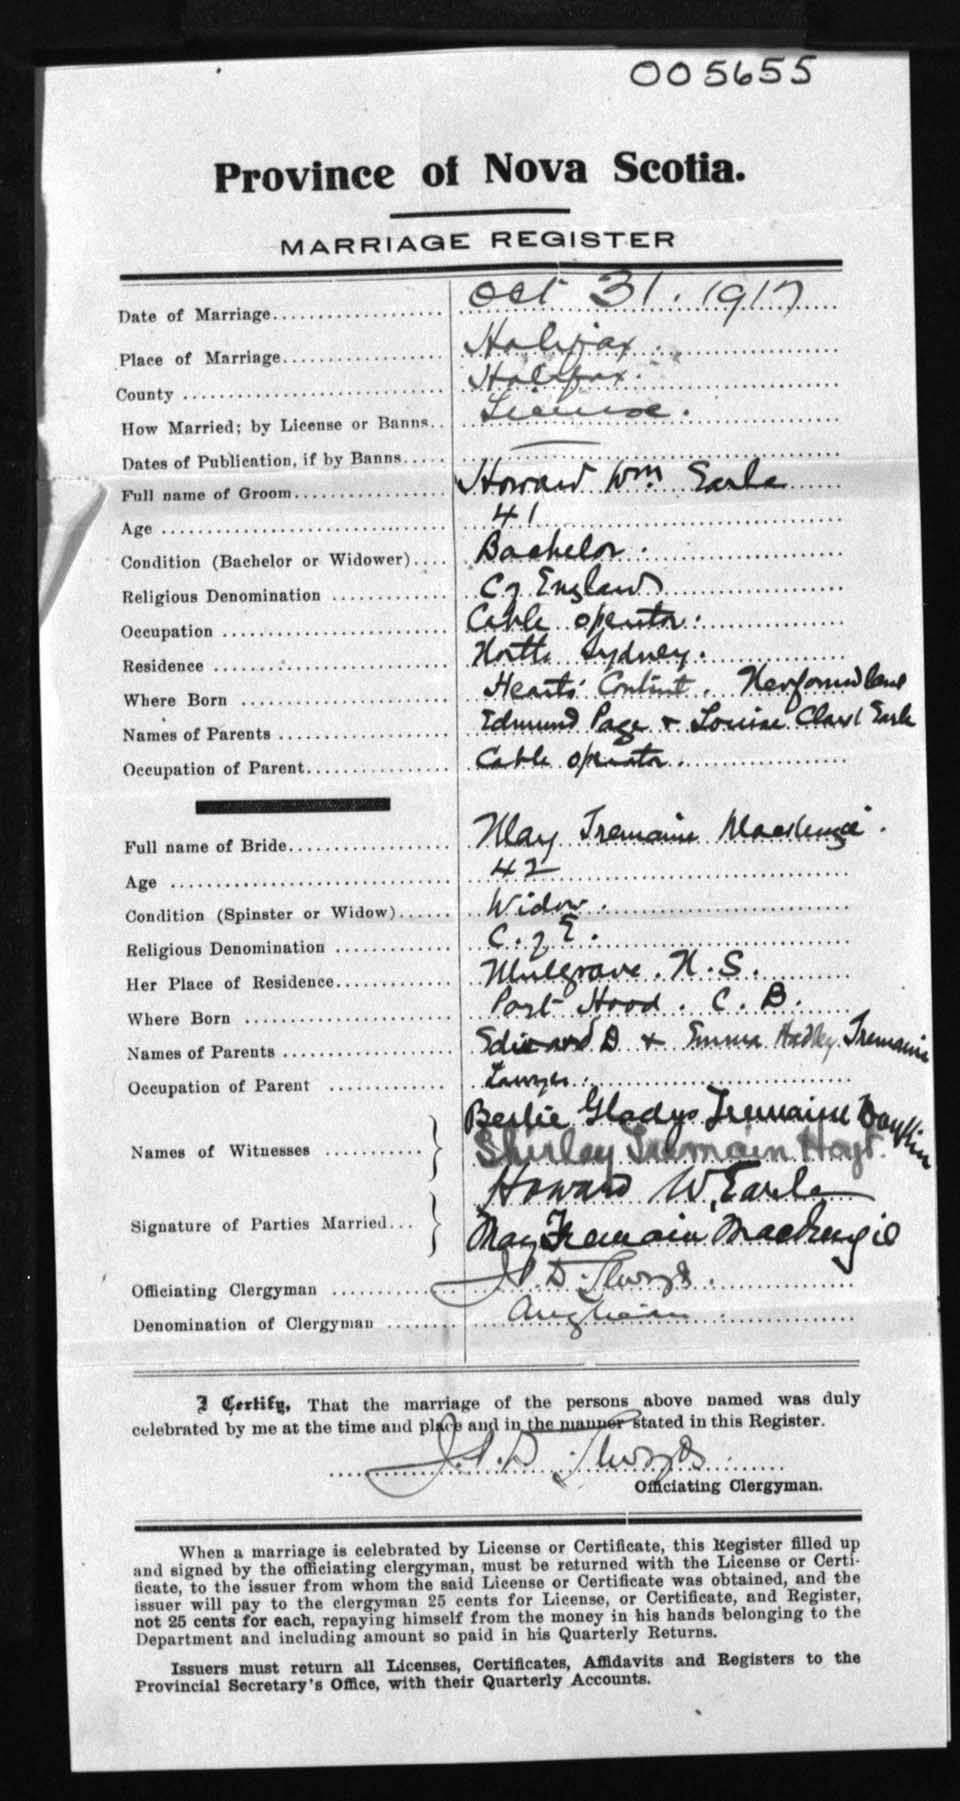 005655
Province of Nova Scotia.
MARRIAGE REGISTER
Date of Marriage Oct 31. 1917
Place of Marriage Halifax.
County Halifax.
How Married; by License or Banns License.
Dates of Publication, if by Banns
Full name of Groom Howard Wm Earle
Age 41
Condition (Bachelor or Widower) Bachelor.
Religious Denomination C of England
Occupation Cable operator.
Residence North Sydney.
Where Born Heart's Content. Newfoundland
Names of Parents Edmund Page + Louise Earle
Occupation of Parent Cable operator.
Full name of Bride May Tremaine Mackenzie.
Age 42
Condition (Spinster or Widow) Widow.
Religious Denomination C. of E.
Her Place of Residence Mulgrave. N.S.
Where Born Port Hood. C. B.
Names of Parents Edward D + Emma Hadley Tremaine
Occupation of Parent Lawyer.
Names of Witnesses Gladys Tremaine
Shirley Tremain Hoyt.
Signature of Parties Married Howard W. Earle
May Tremain Mackenzie
Officiating Clergyman
Denomination of Clergyman Anglican
I Certify, That the marriage of the persons above named was duly
celebrated by me at the time and place and in the manner stated in this Register.
Officiating Clergyman.
When a marriage is celebrated by License or Certificate, this Register filled up
and signed by the officiating clergyman, must be returned with the License or Certi-
ficate, to the issuer from whom the said License or Certificate was obtained, and the
issuer will pay to the clergyman 25 cents for License, or Certificate, and Register,
not 25 cents for each, repaying himself from the money in his hands belonging to the
Department and including amount so paid in his Quarterly Returns.
Issuers must return all Licenses, Certificates, Affidavits and Registers to the
Provincial Secretary's Office, with their Quarterly Accounts.